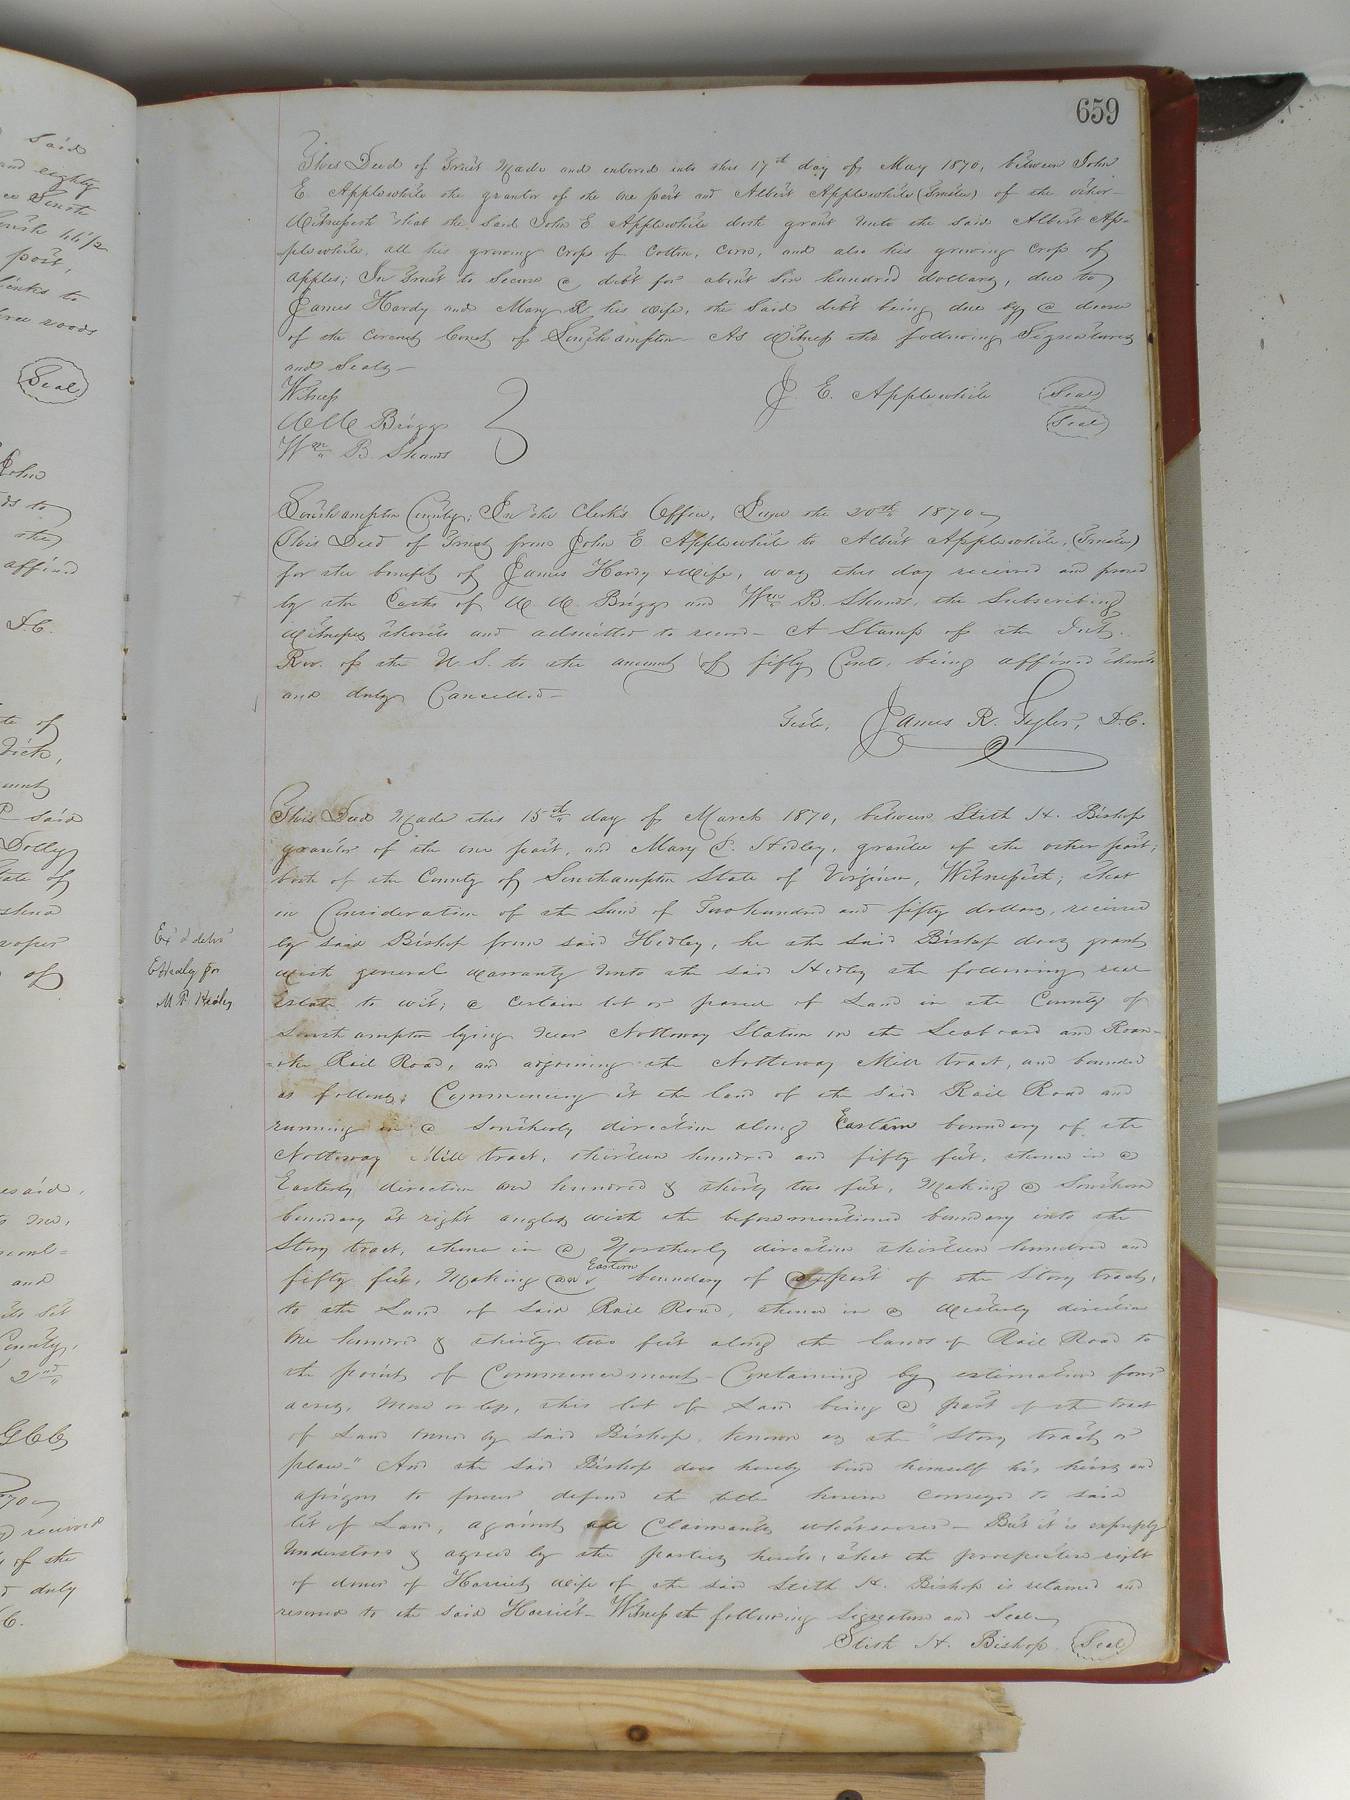 659
This Deed of Trust Made and entered into this 17th day of May 1870, between John
E Applewhite the grantor of the one part and Albert Applewhite (Trustee) of the other
Witnesseth that the said John E Applewhite doth grant unto the said Albert Ap-
plewhite, all his growing Crops of Cotton, Corn, and also his growing Crop of
apples; In Trust to Secure a debt for about Six hundred dollars, due to
James Hardy and Mary R his wife, the Said debt being due by a decree
of the Circuit Court of Southampton - As Witness the following Signatures
and Seals -
Witness
J. E. Applewhite (Seal)
(Seal)
W W Briggs
Wm B. Shands
Southampton County; In the Clerk's Office, June the 20th 1870
This Deed of Trust from John E Applewhite to Albert Applewhite, (Trustee)
for the benefit of James Hardy & Wife, was this day received and proved
by the Oaths of W. W. Briggs and Wm B. Shands, the Subscribing
Witnesses thereto and admitted to record - A Stamp of the Int.
Rev. of the U. S. to the amount of fifty Cents, being affixed thereto
and duly Cancelled -
Teste, James R. Tyler, D.C.
This Deed Made this 15th day of March 1870, between Stith H. Bishop
grantor of the one part, and Mary P. Hedley, grantee of the other part;
both of the County of Southampton State of Virginia, Witnesseth; that
in Consideration of the Sum of Two hundred and fifty dollars, received
by said Bishop from said Hedley, he the said Bishop does grant
with general warranty unto the said Hedley the following real
estate to wit; a certain lot or parcel of Land in the County of
Southampton lying near Nottoway Station on the Seaboard and Roan-
=oke Rail Road, and adjoining the Nottoway Mill tract, and bounded
as follows; Commencing at the land of the said Rail Road and
running in a Southerly direction along Eastern boundary of the
Nottoway Mill tract, thirteen hundred and fifty feet, thence in a
Easterly direction one hundred & thirty two feet, Making a Southern
boundary at right angles with the beforementioned boundary into the
Story tract, thence in a Northerly direction thirteen hundred and
fifty feet, Making an Eastern boundary of part of the Story tract,
to the Land of Said Rail Road, thence in a Westerly direction
One hundred & thirty two feet along the lands of Rail Road to
the point of Commencement - Containing by estimation four
acres, More or less, this lot of Land being a part of the tract
of Land owned by said Bishop, known as the "Story tract or
place" And the Said Bishop does hereby bind himself his heirs and
assigns to forever defend the title herein conveyed to said
lot of Land, against all Claimants whatsoever - But it is expressly
Understood & agreed by the parties hereto, that the prospective right
of dower of Harriet, wife of the said Stith H. Bishop is retained and
reserved to the said Harriet - Witness the following Signature and Seal
Stith H. Bishop (Seal)